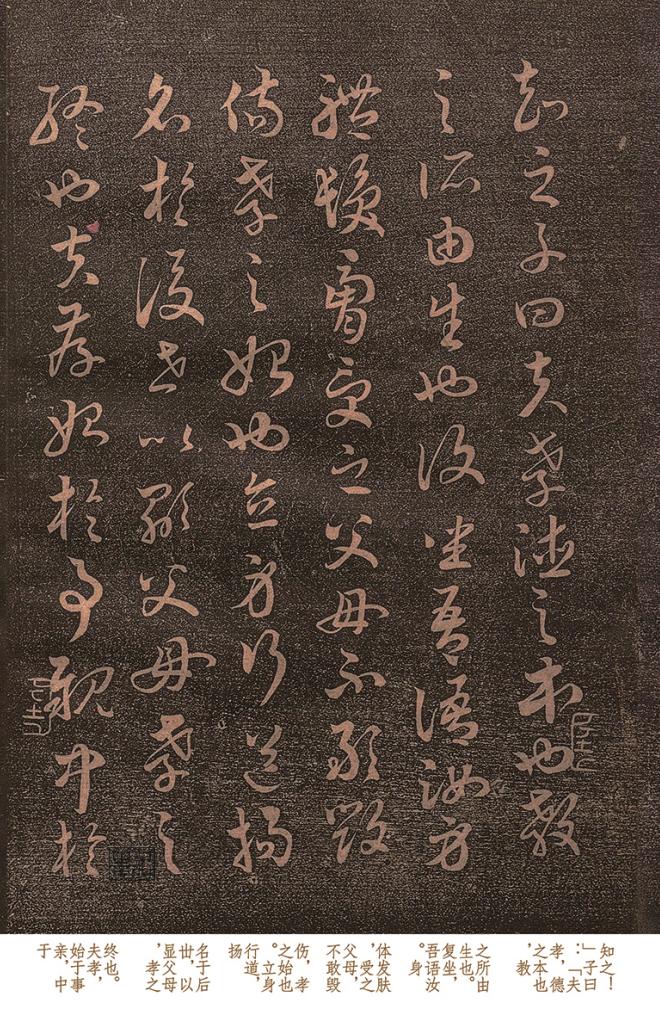 知之子曰夫孝德之本也教
之所由生也復坐吾語汝身
體髮膚受之父母不敢毀
傷孝之始也立身行道揚
名於後世以顯父母孝之
終也夫孝始於事親中於
知之！
」子曰
：「夫
孝，德
之本也
，教
之所由
生也。
复坐，
吾语汝
。身
体发肤
，受之
父母，
不敢毁
伤，孝
之始也
。立身
行道，
扬
名于后
世，以
显父母
，孝之
终也。
夫孝，
始于事
亲，中
于